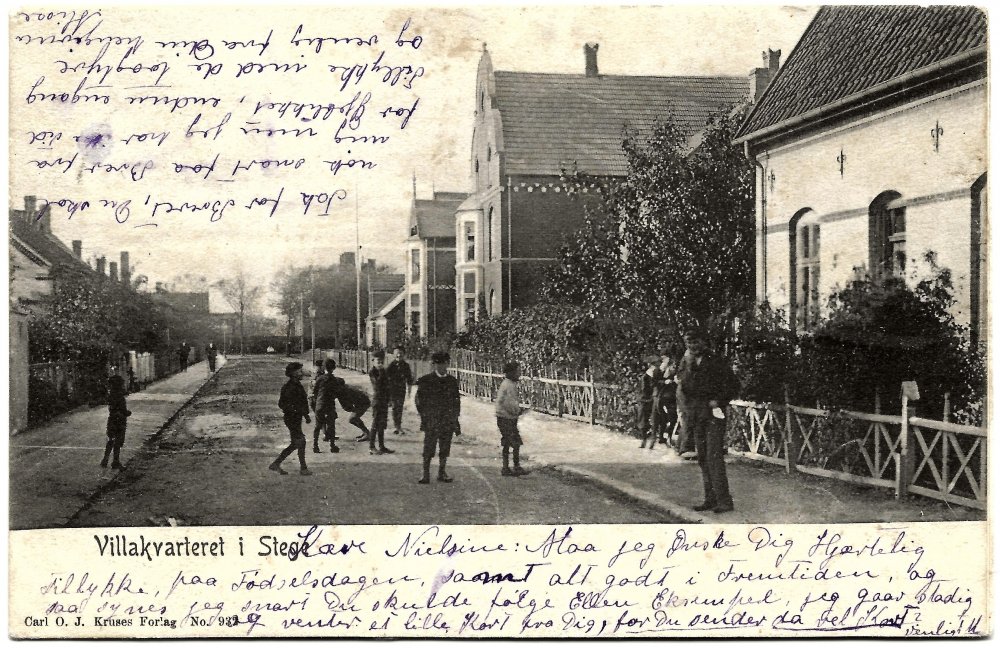 Villakvarteret i Stege
Kære Nielsine: Maa jeg Ønske Dig Hjærtelig
tillykke, paa Fødselsdagen, samt alt godt i Fremtiden, og
saa synes jeg snart Du skulde følge Ellen Eksempel, jeg gaar stadig
og venter et lille Kort fra Dig, for Du sender da vel Kort?
venligst M
Carl O. J. Kruses Forlag No. 932
Tak for Brevet, Du skal
nok snart faa Brev fra
mig men jeg har ikke Tid
for Øjeblikket, endnu engang
Tillykke med de tooghyve
og venlig fra din hengivne